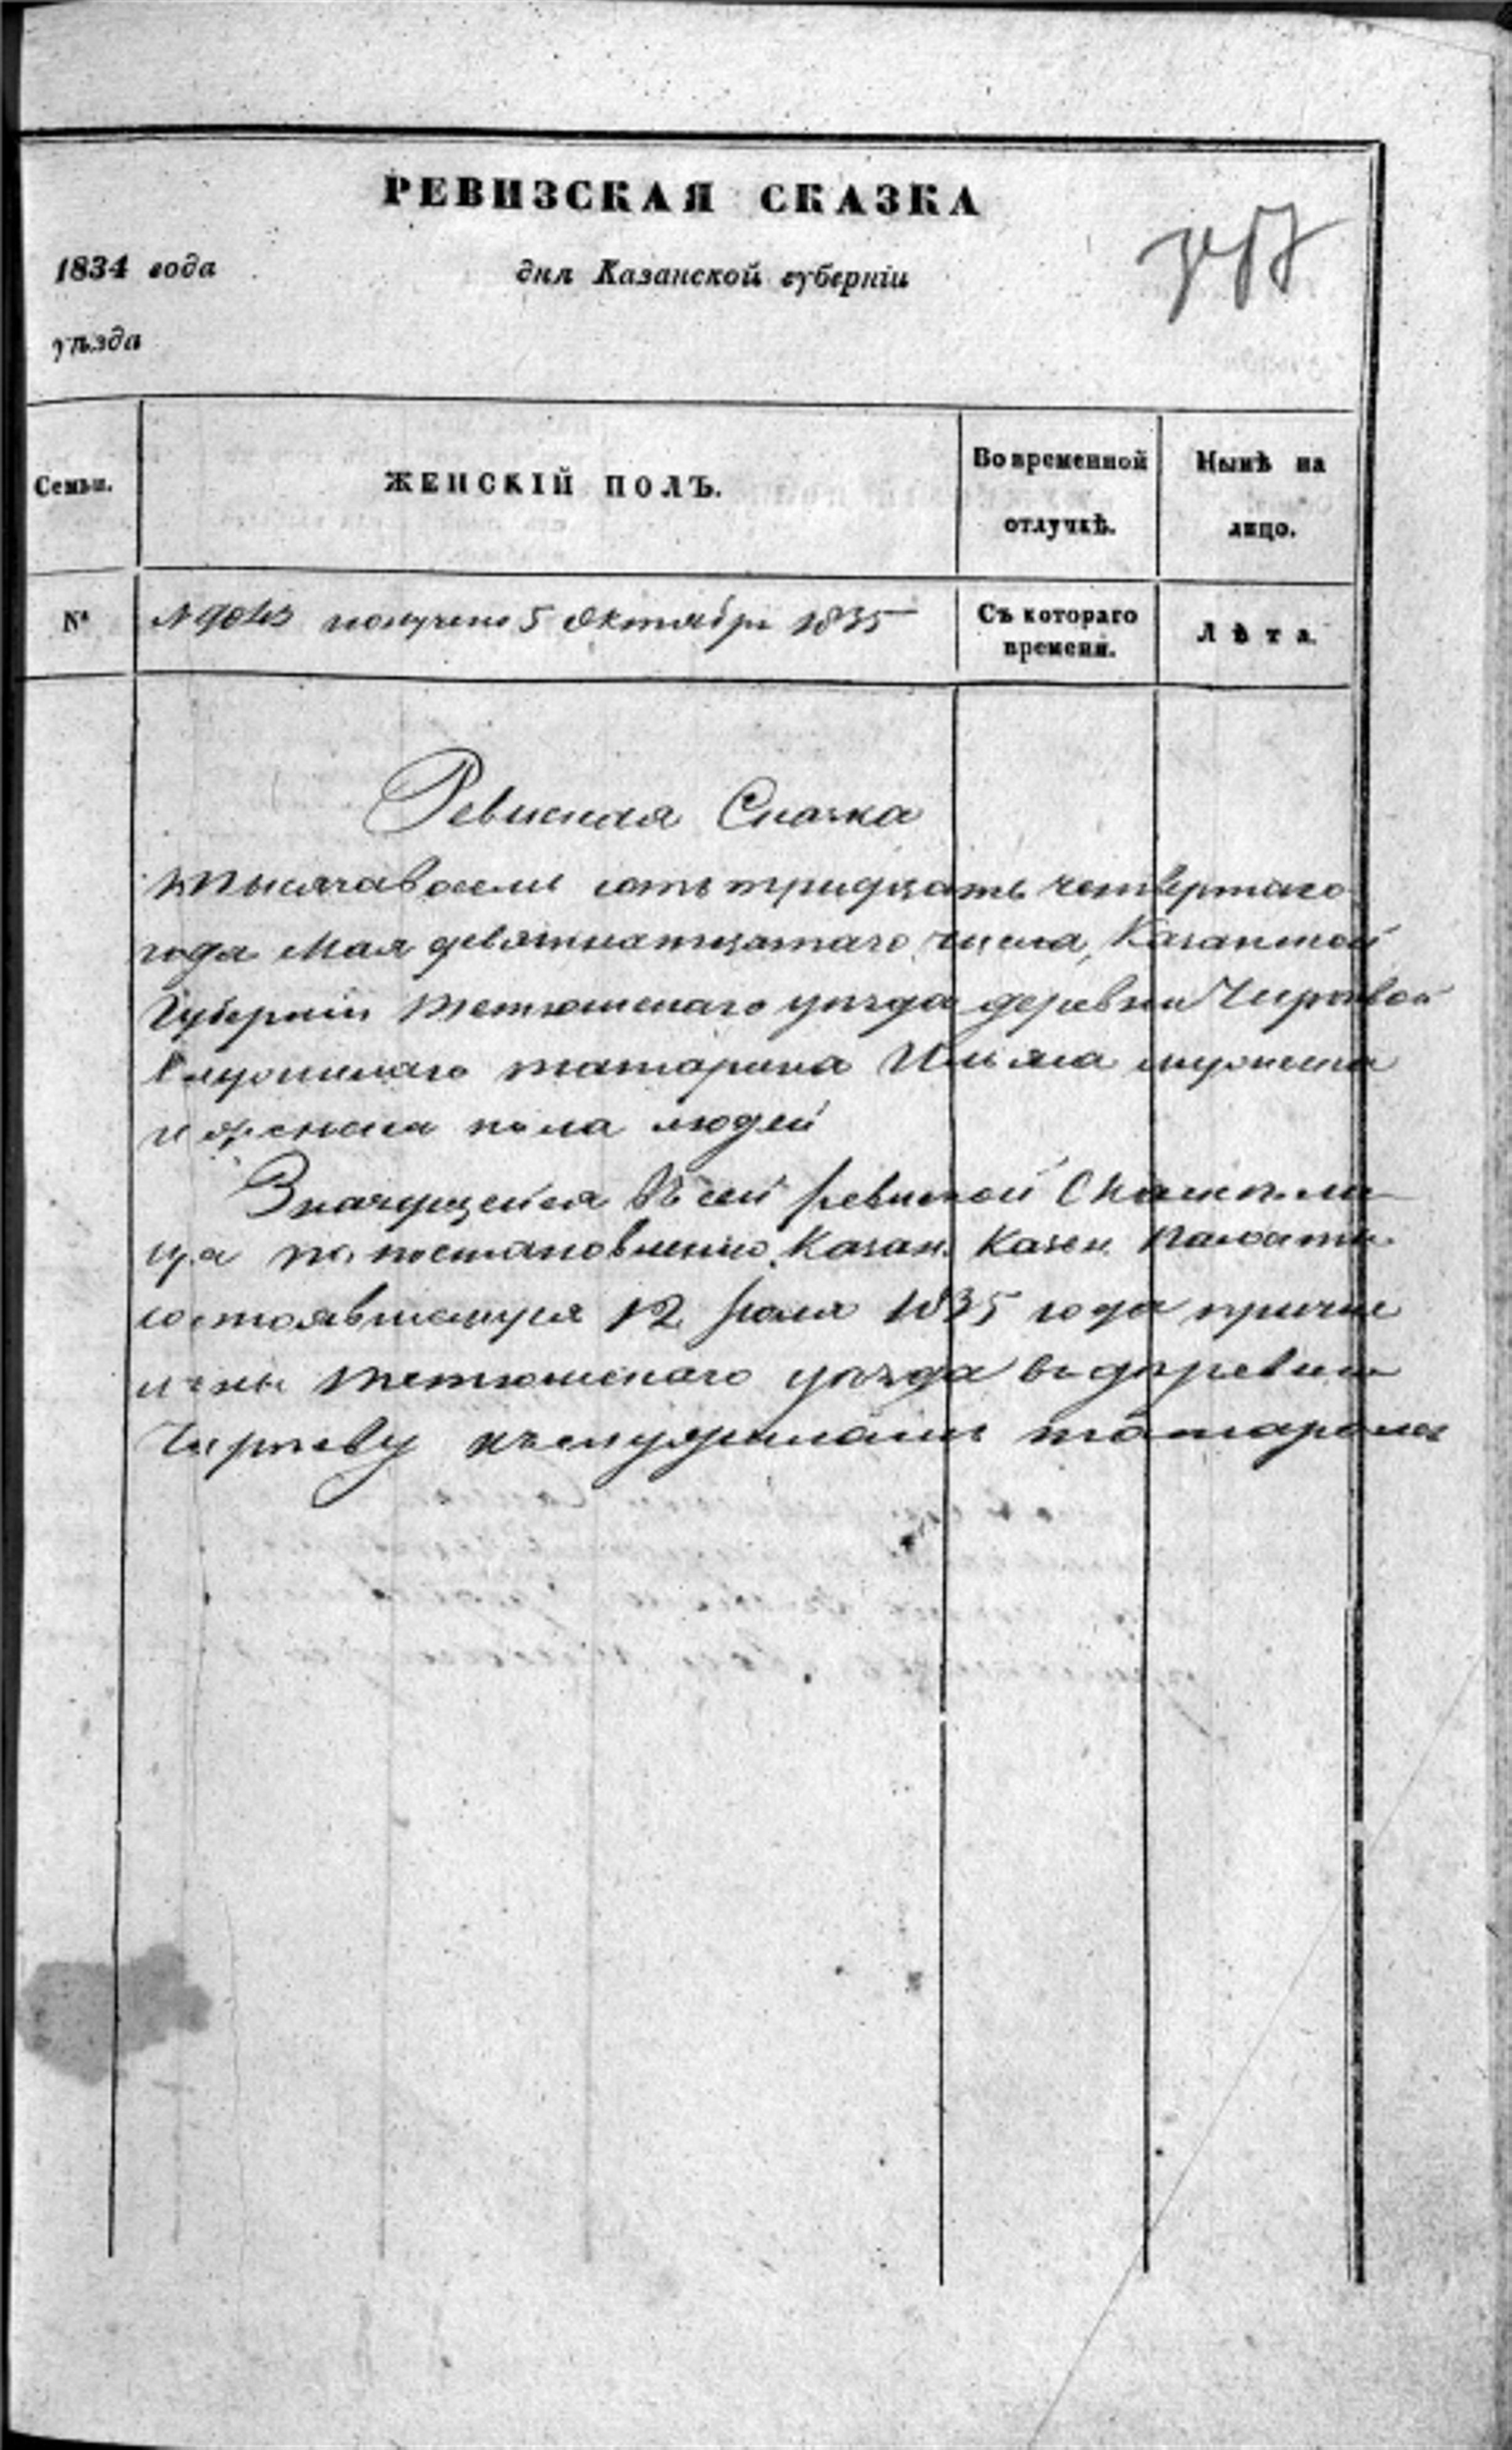 РЕВИЗСКАЯ СКАЗКА
1834 года дня Казанской губерніи
уѣзда
Семьи. ЖЕНСКІЙ ПОЛЪ. Во временной отлучкѣ. Нынѣ на лицо.
№ получено 5 Октября 1835 Съ котораго времени. Лѣта.
Ревиская Сказка
тысяча восемь сотъ тридцать четвертаго
года Мая девятнатцатаго числа, Казанской
Губерніи Тетюшскаго уѣзда деревни
татарина мужеска
и женска пола людей
Значущейся въ сей ревиской Сказкѣ ли
ца по постановлению Казан. Казен. Палаты
состоявшемуся 12 1835 года причис
лены Тетюшскаго уѣзда въ деревню
татарамъ